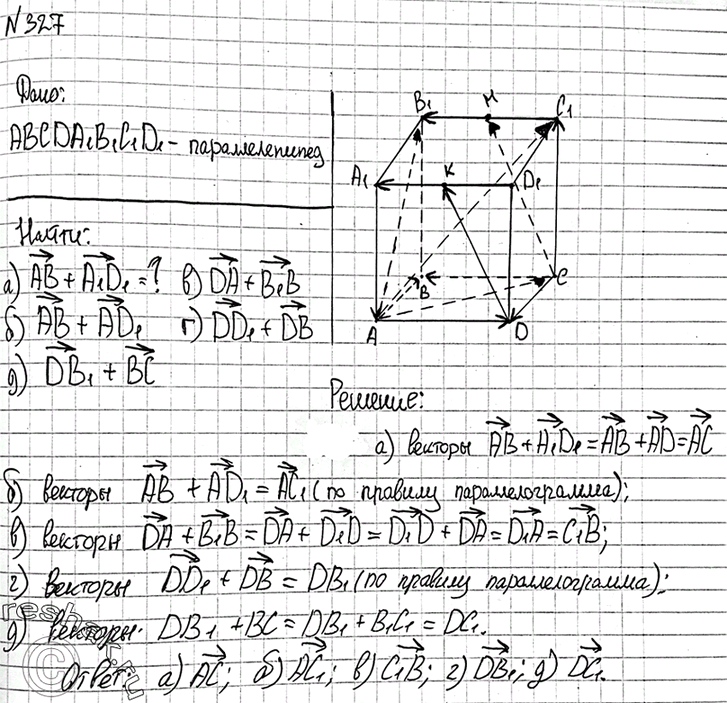 N327
Дано:
ABCDA₁B₁C₁D₁ – параллелепипед
Найти:
а) AB⃗ + A₁D₁⃗ = ? в) DA⃗ + B₁B⃗
б) AB⃗ + AD₁⃗ г) DD₁⃗ + DB⃗
д) DB₁⃗ + BC⃗
B₁ M C₁
A₁ K D₁
B C
A D
Решение:
а) векторы AB⃗ + A₁D₁⃗ = AB⃗ + AD⃗ = AC⃗
б) векторы AB⃗ + AD₁⃗ = AC₁⃗ (по правилу параллелограмма);
в) векторы DA⃗ + B₁B⃗ = DA⃗ + D₁D⃗ = D₁D⃗ + DA⃗ = D₁A⃗ = C₁B⃗;
г) векторы DD₁⃗ + DB⃗ = DB₁ (по правилу параллелограмма);
д) векторы DB₁ + BC = DB₁ + B₁C₁ = DC₁.
Ответ: а) AC⃗; б) AC₁⃗; в) C₁B⃗; г) DB₁⃗; д) DC₁⃗.